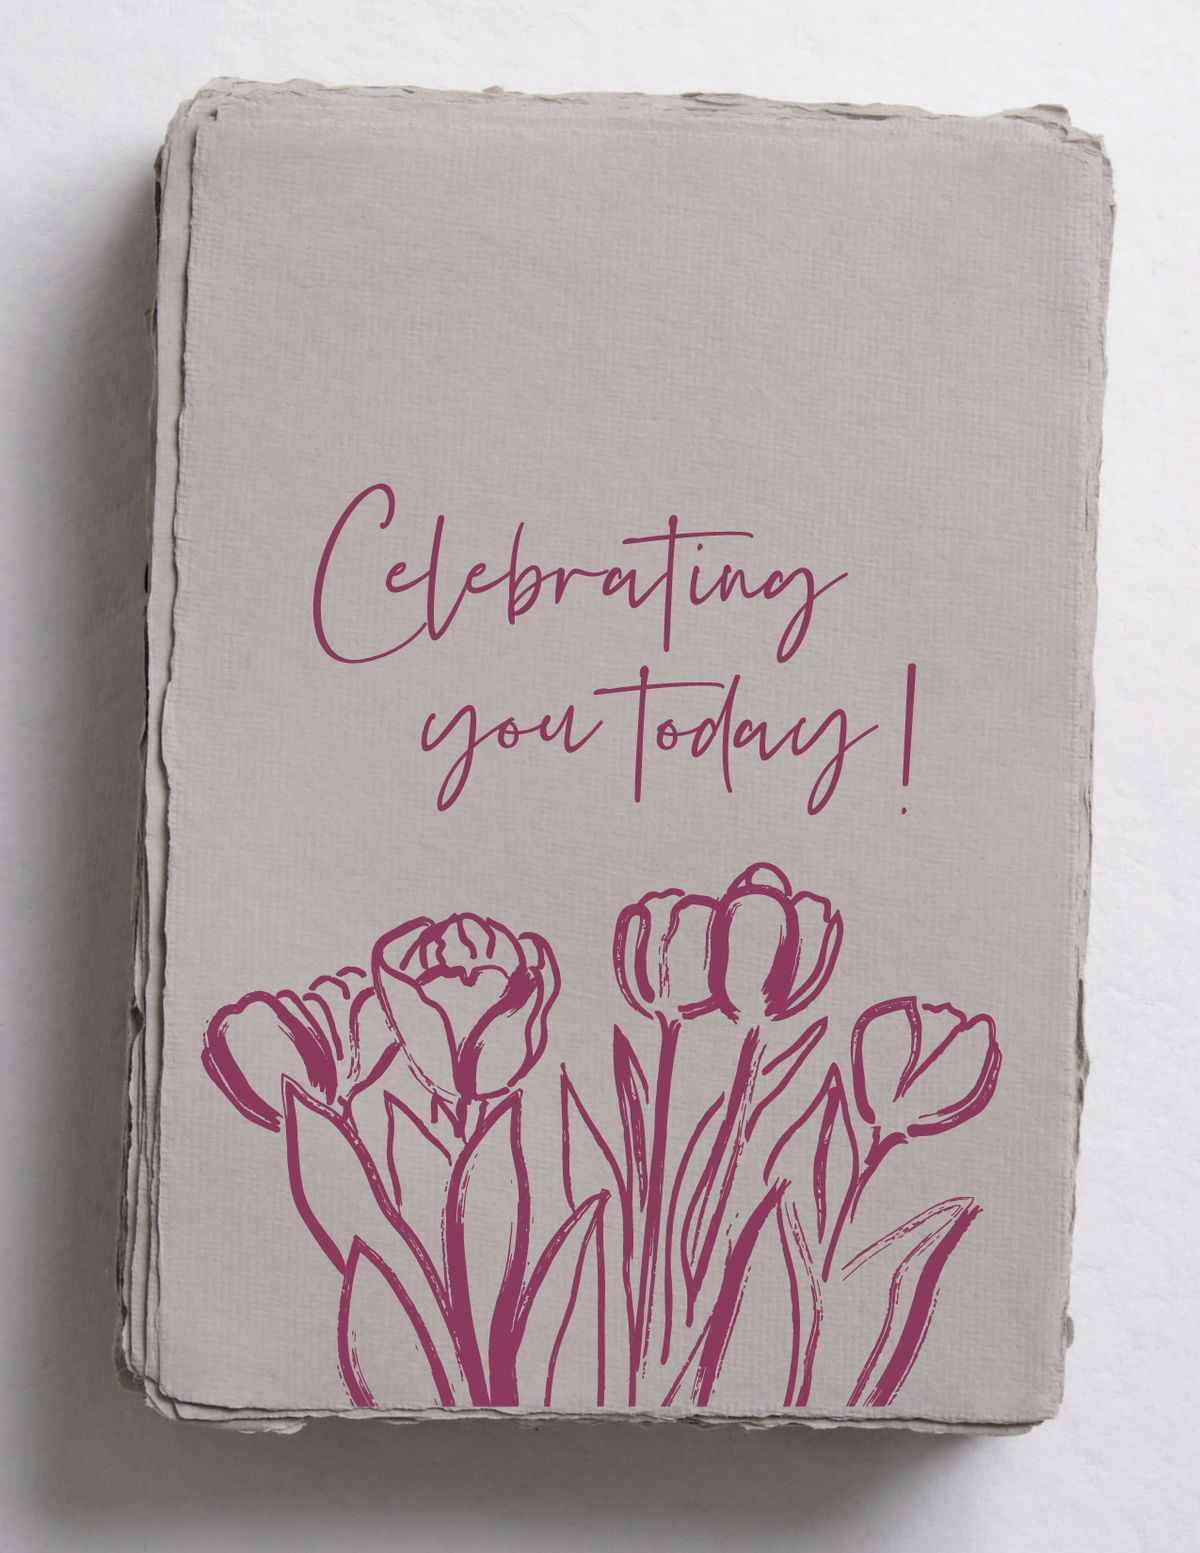 Celebrating
you today!